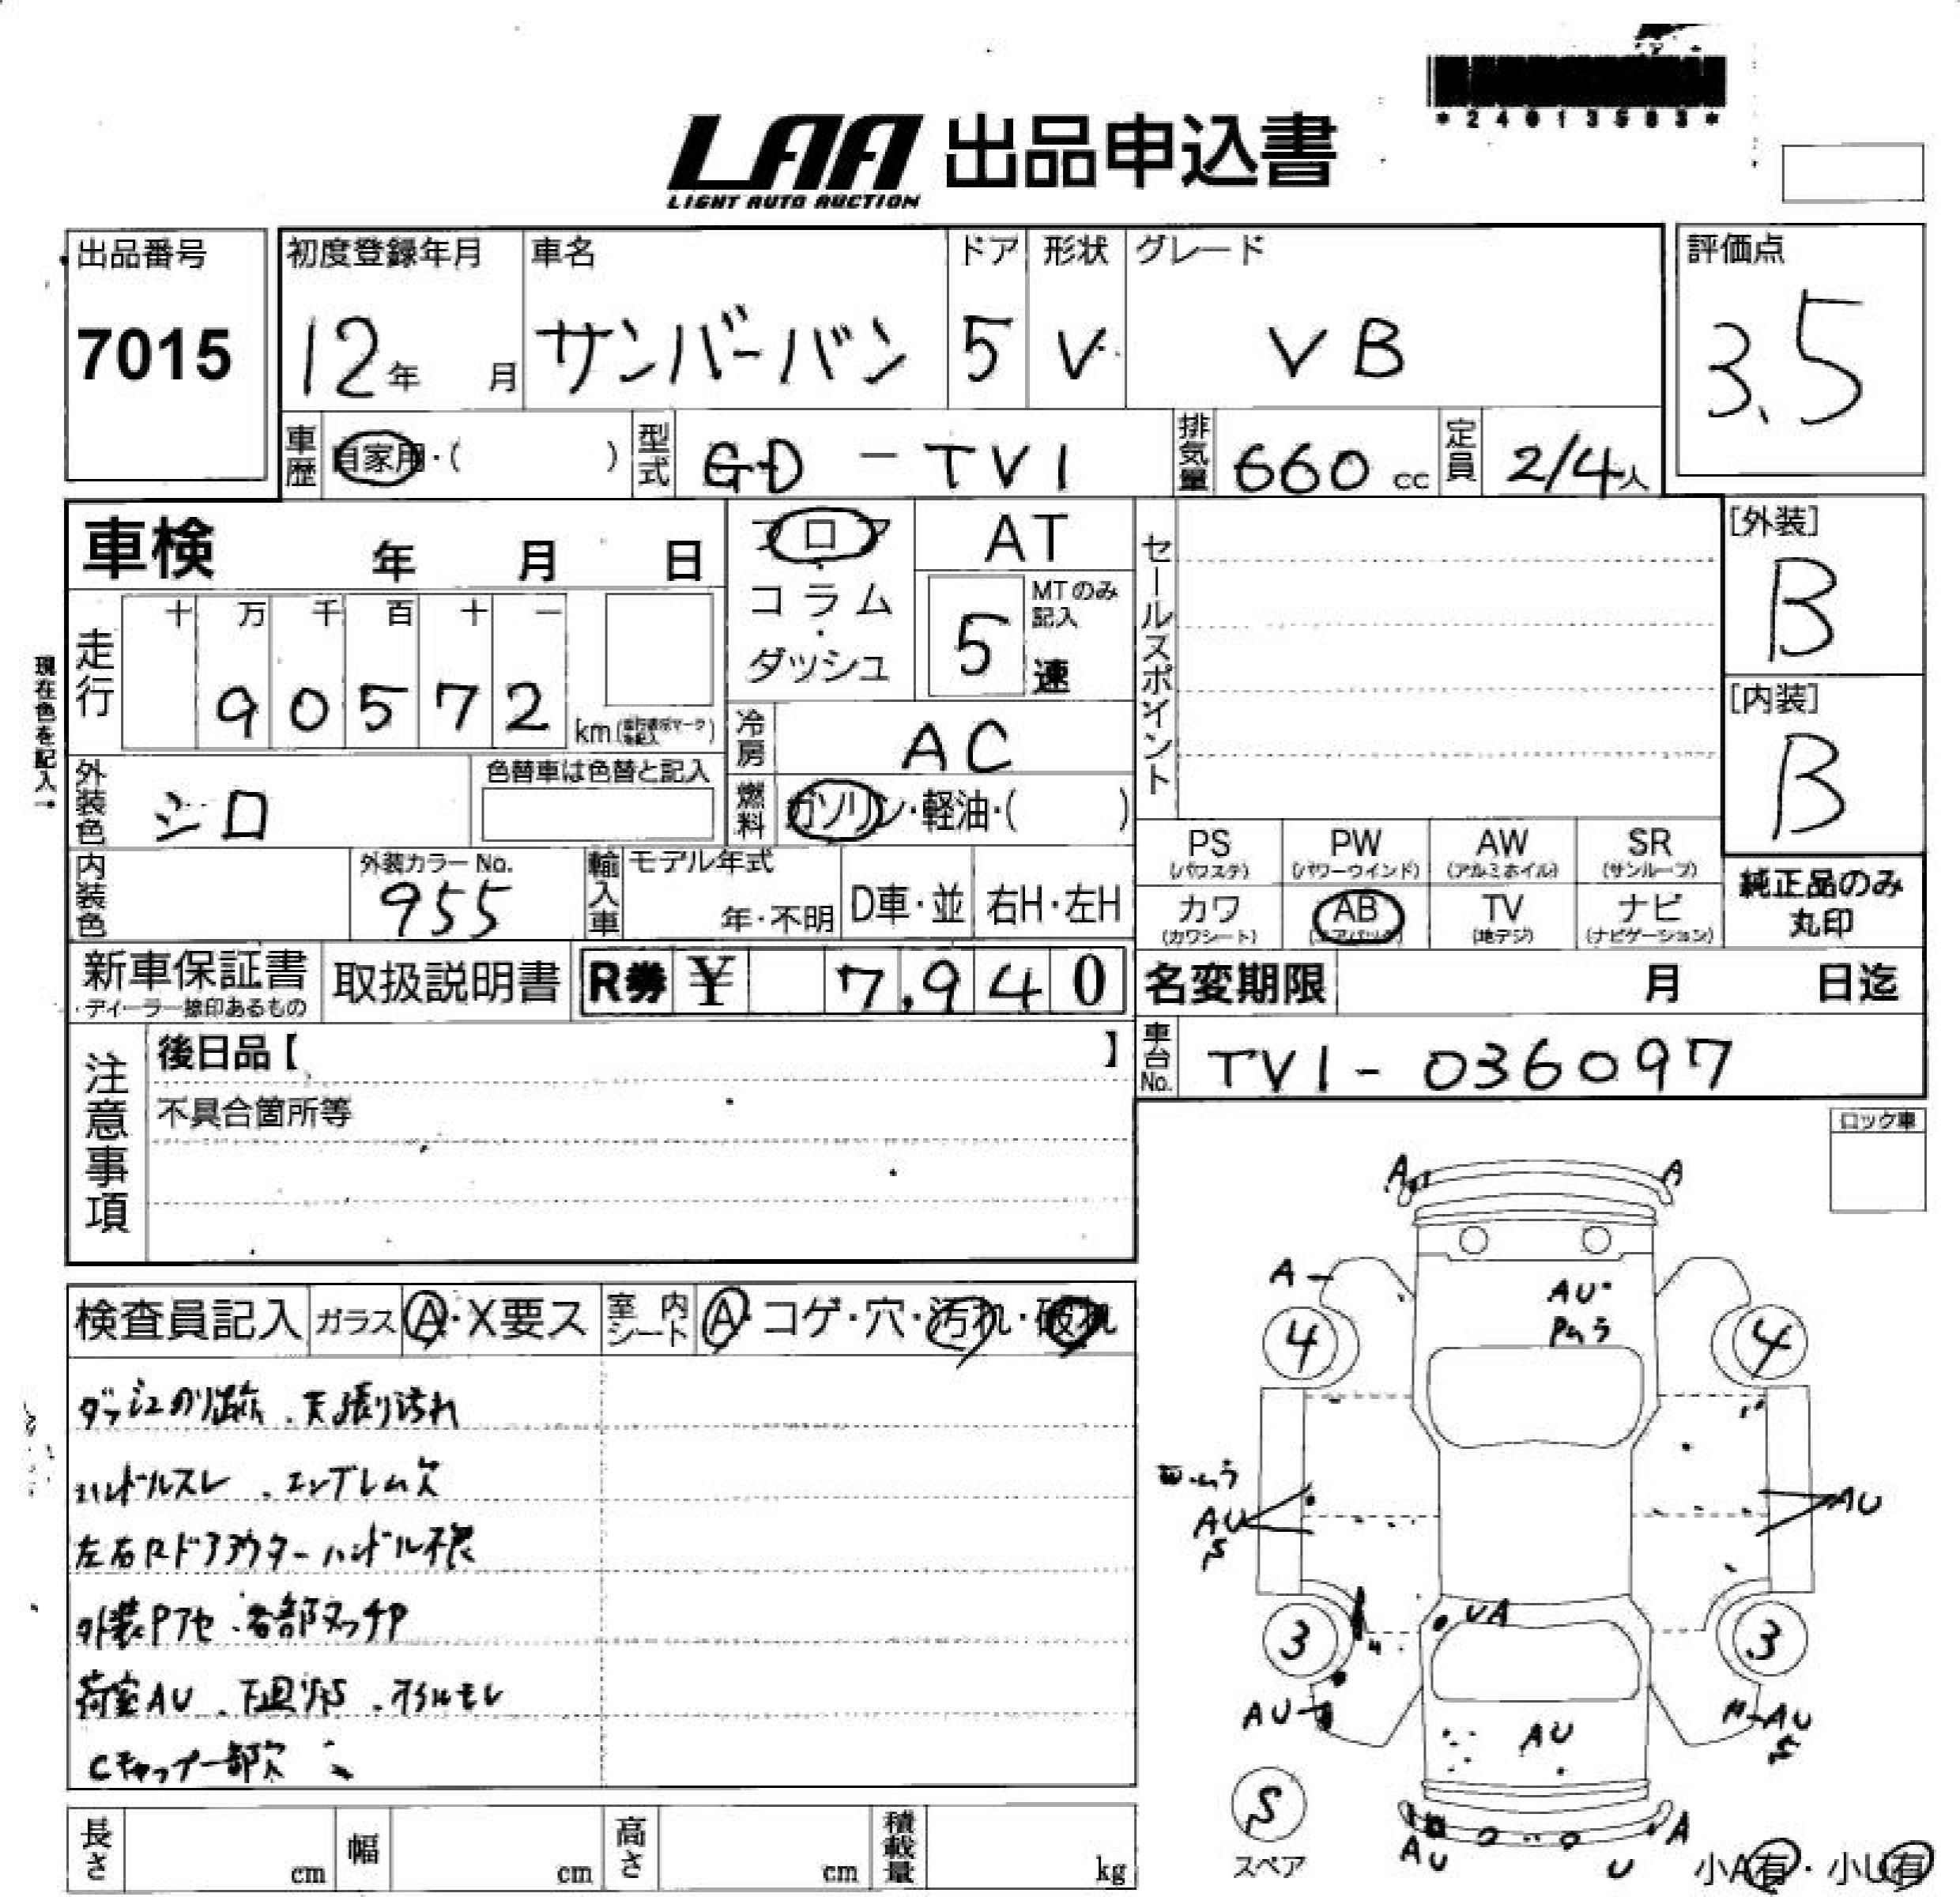 *24013583*
LAA 出品申込書
LIGHT AUTO AUCTION
出品番号 初度登録年月 車名 ドア 形状 グレード 評価点
7015 12年 月 サンバーバン 5 V VB 3.5
車歴 自家用・( ) 型式 GD-TV1 排気量 660cc 定員 2/4人
車検 年 月 日 フロア・コラム・ダッシュ AT
5速 MTのみ記入
セールスポイント
[外装] B
現在色を記入→
走行 十 万 千 百 十 一
90572 km
冷房 AC
[内装] B
外装色 シロ 色替車は色替と記入
燃料 ガソリン・軽油・( )
PS (パワステ) PW (パワーウインド) AW (アルミホイル) SR (サンルーフ)
内装色 外装カラーNo. 955 輸入車 モデル年式 年・不明 D車・並 右H・左H
カワ (カワシート) AB (エアバック) TV (地デジ) ナビ (ナビゲーション)
純正品のみ丸印
新車保証書 ・ディーラー捺印あるもの 取扱説明書 R券 ¥ 7,940
名変期限 月 日迄
車台No. TV1-036097
注意事項
後日品【 】
不具合箇所等
ロック車
検査員記入 ガラス A・X要ス 室内シート A・コゲ・穴・汚れ・破れ
ダッシュのり跡、天張り汚れ
ハンドルスレ、エンブレム欠
左右Rドアアウターハンドル不良
外装Pアセ、各部タッチP
荷室AU、下回りS、オイルモレ
Cキャップ一部欠
A A
A
AU
Pムラ
4 4
ムラ
AU
S
AU
UA
3 3
AU AU AU
S
S
スペア
AU U A
小A有・小U有
長さ cm 幅 cm 高さ cm 積載量 kg